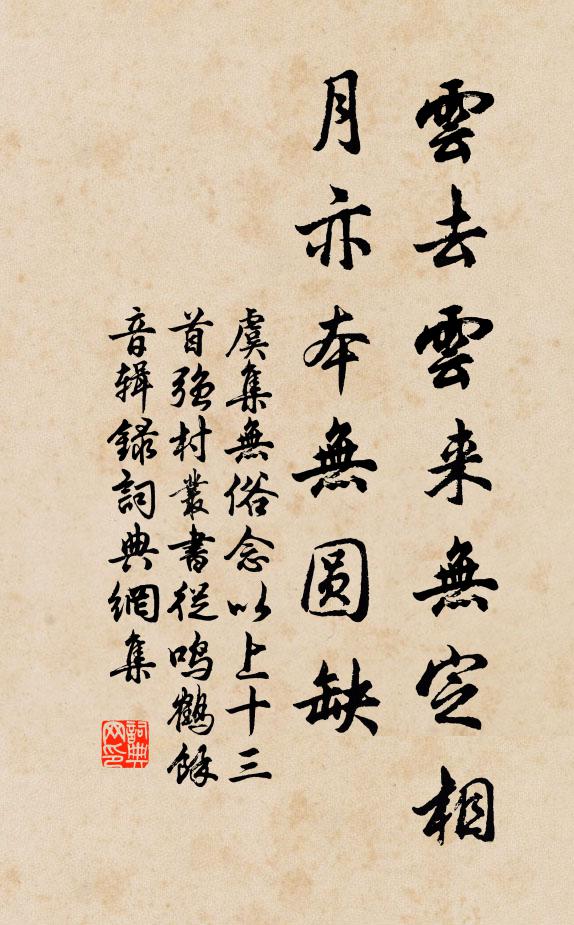 雲去雲来無定相
月亦本無圆缺
虞集無俗念以上十三
首強村叢書從鸣鶴餘
音輯録詞典網集
詞典
网印